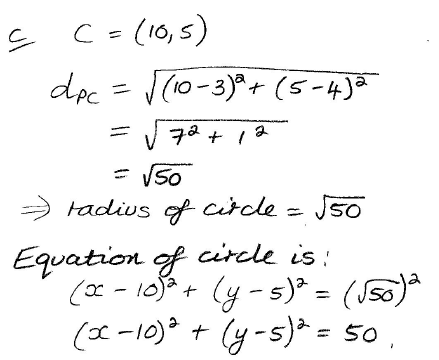 c C = (10,5)
dPC = √((10-3)² + (5-4)²)
= √(7² + 1²)
= √50
⇒ radius of circle = √50
Equation of circle is:
(x - 10)² + (y - 5)² = (√50)²
(x - 10)² + (y - 5)² = 50.